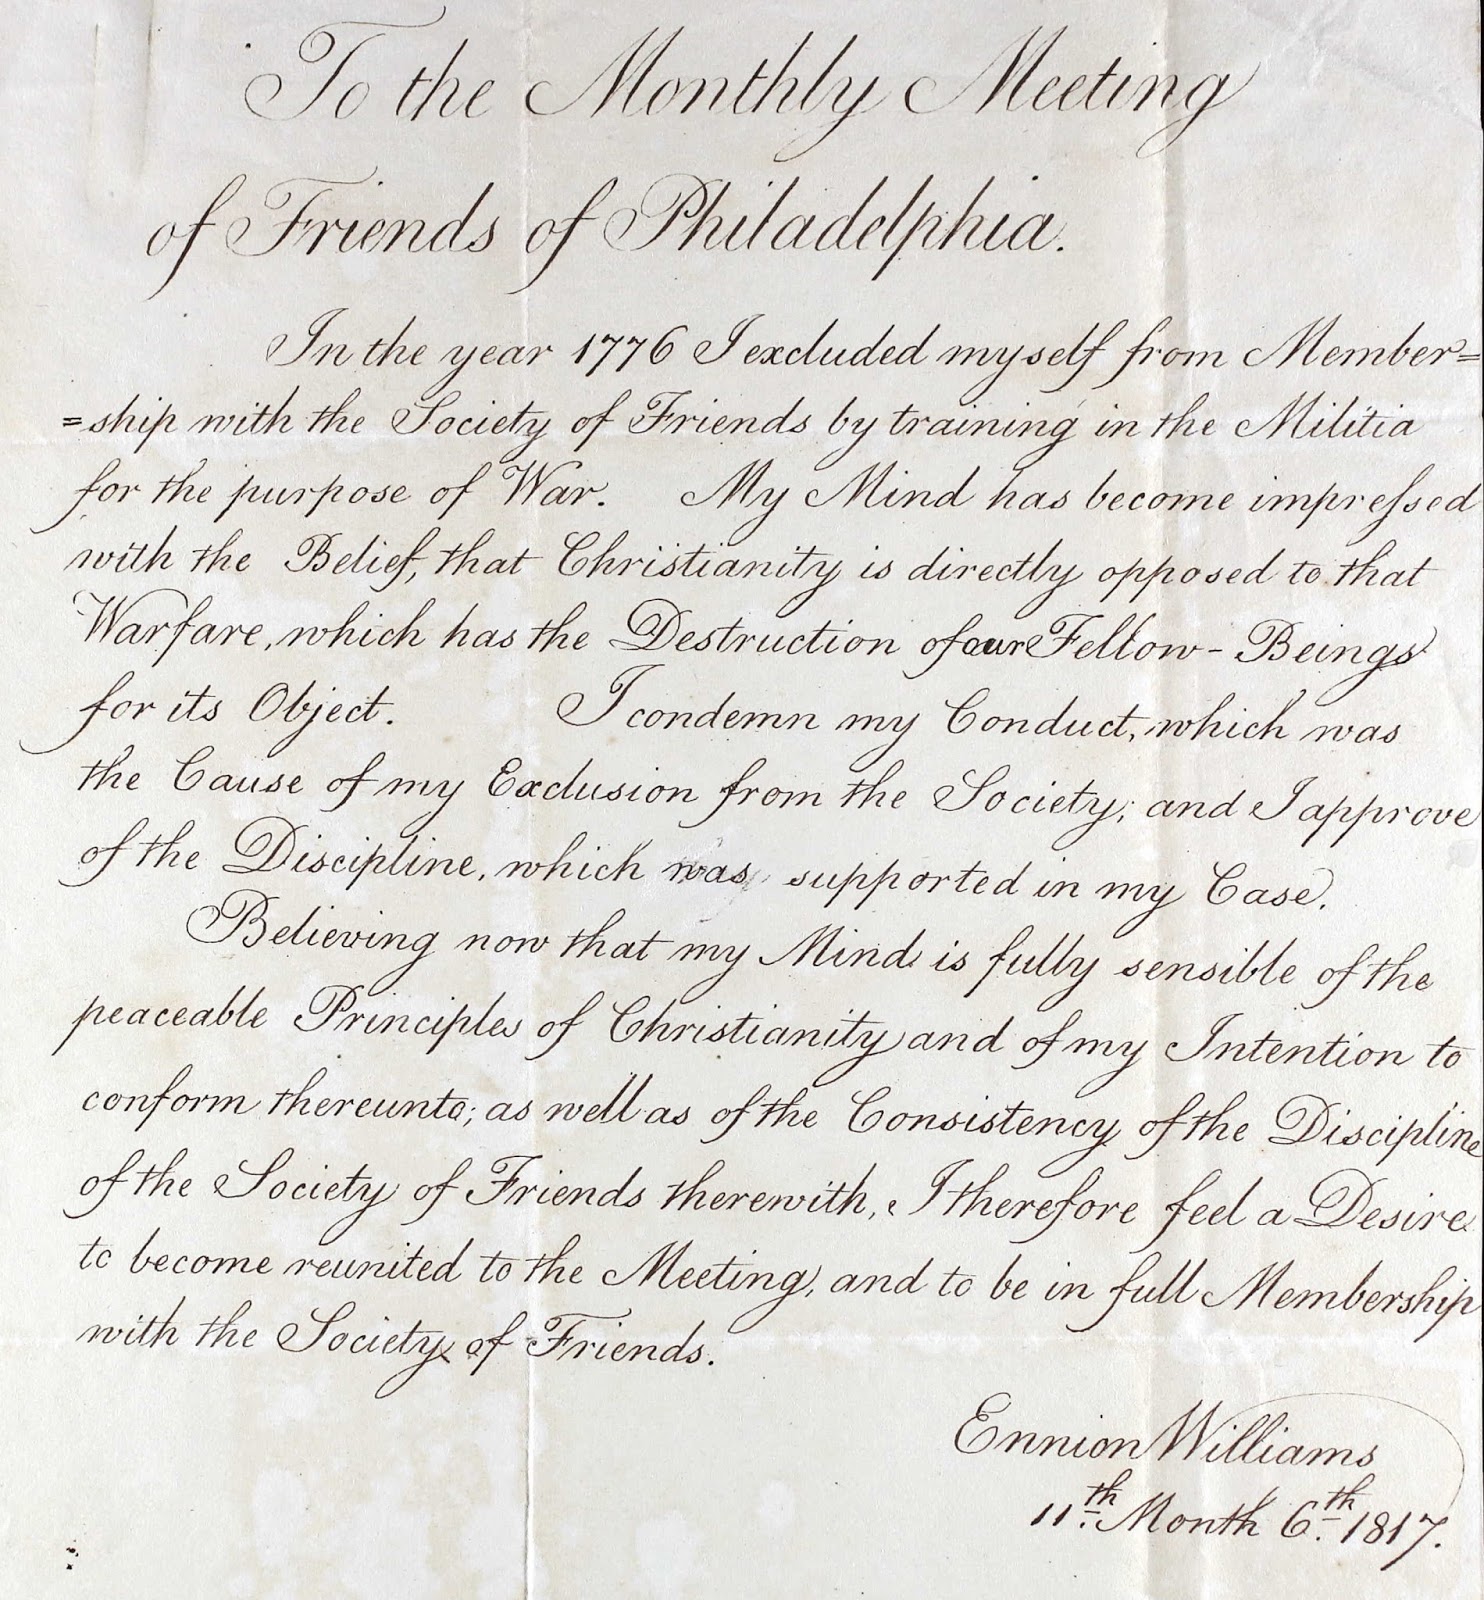 To the Monthly Meeting
of Friends of Philadelphia.
In the year 1776 I excluded myself from Member=
=ship with the Society of Friends by training in the Militia
for the purpose of War. My Mind has become impreſsed
with the Belief, that Christianity is directly opposed to that
Warfare, which has the Destruction of our Fellow-Beings
for its Object. I condemn my Conduct, which was
the Cause of my Exclusion from the Society; and I approve
of the Discipline, which was supported in my Case.
Believing now that my Mind is fully sensible of the
peaceable Principles of Christianity and of my Intention to
conform thereunto; as well as of the Consistency of the Discipline
of the Society of Friends therewith, I therefore feel a Desire
to become reunited to the Meeting, and to be in full Membership
with the Society of Friends.
Ennion Williams
11th. Month 6th. 1817.